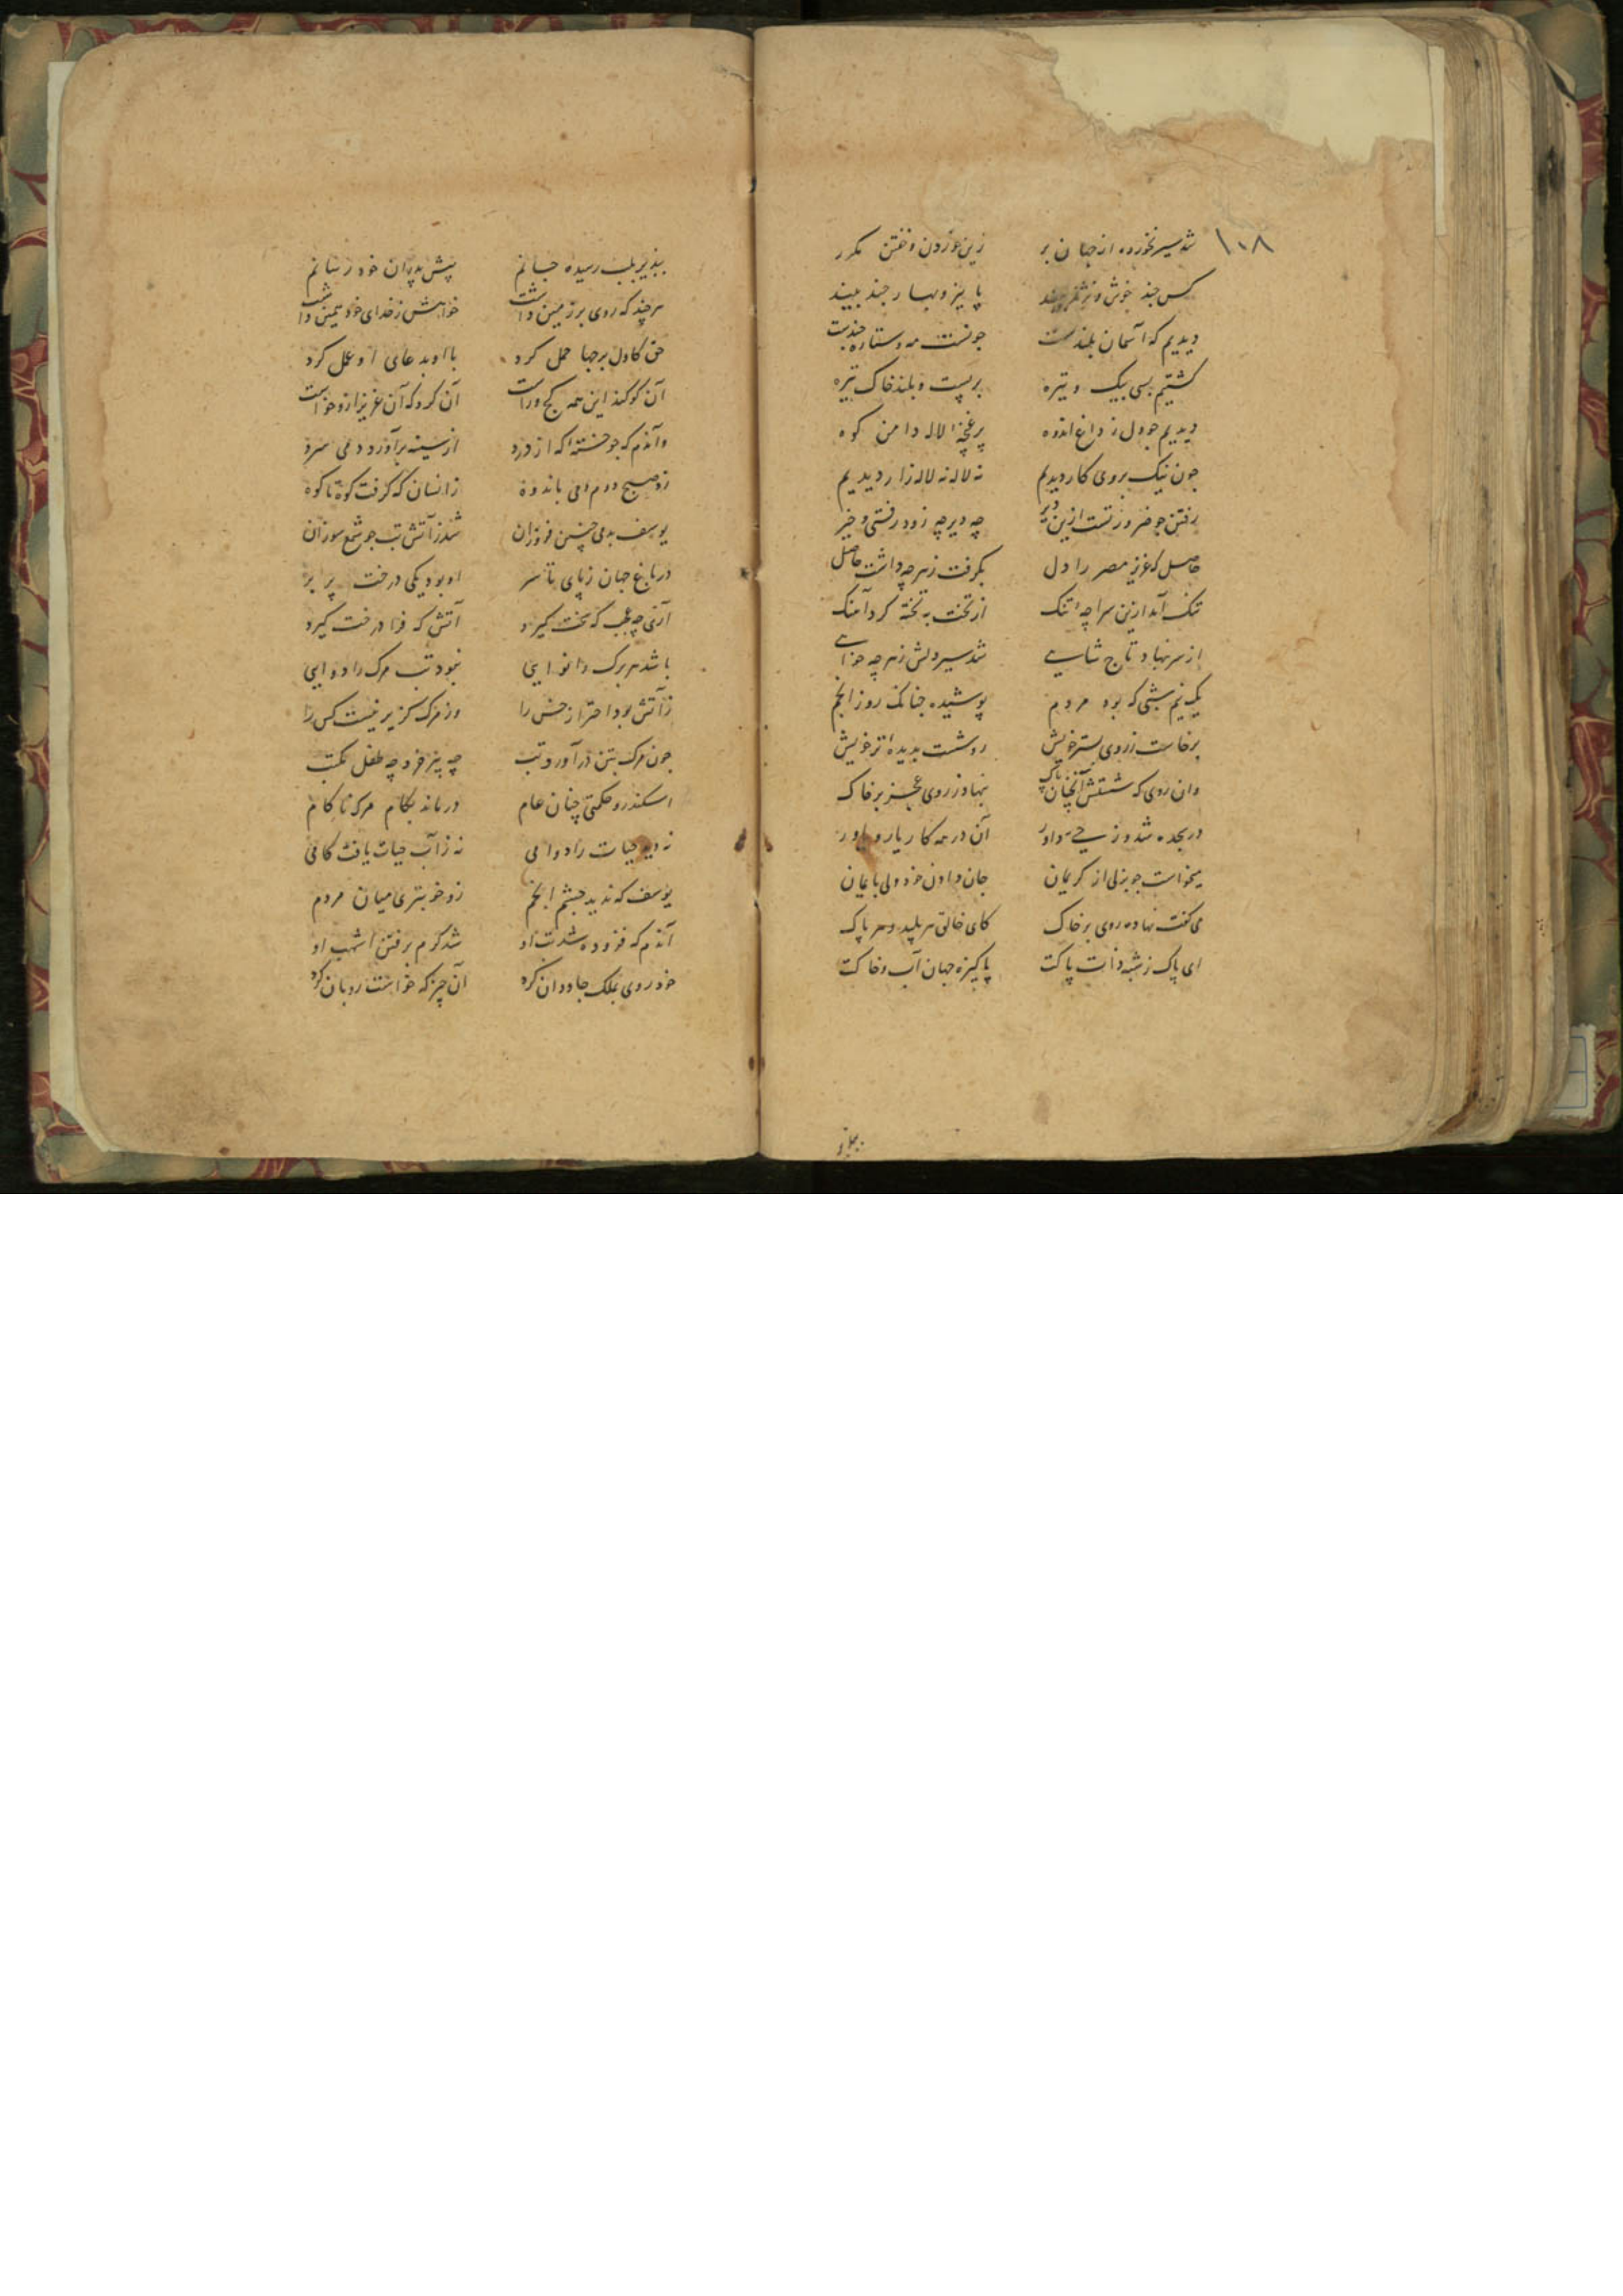 ۱۰۸
شد سیر نخورده از جهان بر زین خوردن و خفتن مکرر
کس چند خوش و پاییز و بهار چند بیند
دیدیم که آسمان بلندست چونست مه و ستاره چندست
کشتیم بسی بیک وتیره بر پست و بلند خاک تیره
دیدیم چو دل ز داغ اندوه پر غنچه لاله دامن کوه
چون نیک بروی کار دیدیم نه لاله نه لاله زار دیدیم
رفتن چو ضرورتست ازین دیر چه دیر چه زود رفتی و خیر
حاصل که عزیز مصر را دل بگرفت ز هر چه داشت حاصل
تنک آمد ازین سراچهٔ تنک از تخت به تخته کرد آهنک
از سر نهاد تاج شاهی شد سیر دلش ز هر چه خواهی
یک نیم شبی که بود مردم پوشیده چنانک روز انجم
برخاست ز روی بستر خویش رو شست بدیدهٔ تر خویش
وان روی که شستش آنچنان پاک نهاد ز روی عجز بر خاک
در سجده شد و ز حی داور آن در همه کار یار و یاور
میخواست چو بزلی از کریمان جان دادن خود ولی بایمان
می گفت نهاده روی بر خاک کای خالق هر پلید و هر پاک
ای پاک ز شبه ذات پاکت پاکیزه جهان آب و خاکت
بپذیر بلب رسیده جانم پیش پدران خود رسانم
هر چند که روی بر زمین داشت خواهش ز خدای خود همین داشت
حق کاول برجها حمل کرد با او بدعای او عمل کرد
آن کو کند این همه کج و راست آن کرد که آن عزیز ازو خواست
واندم که چو خسته که از درد از سینه برآورد دمی سرد
زد صبح دوم دمی باندوه زانسان که گرفت کوه تا کوه
یوسف بدمی چنین فروزان شد ز آتش تب چو شمع سوزان
در باغ جهان ز پای تا سر او بود یکی درخت پر بر
آری چه عجب که سخت گیرد آتش که فرا درخت گیرد
باشد هر برک را نوایی نبود تب مرک را دوایی
ز آتش بود احتراز خس را وز مرک گزیر نیست کس را
چون مرک بتن درآورد تب چه پیر خرد چه طفل مکتب
اسکندر و حکمتی چنان عام درماند بکام مرک ناکام
نه دید حیات را دوامی نه ز آب حیات یافت کامی
یوسف که ندید چشم انجم زو خوبتری میان مردم
آندم که فزوده شد تب او شد گرم برفتن اشهب او
خود روی بملک جاودان کرد آن چیز که خواست رو بان کرد